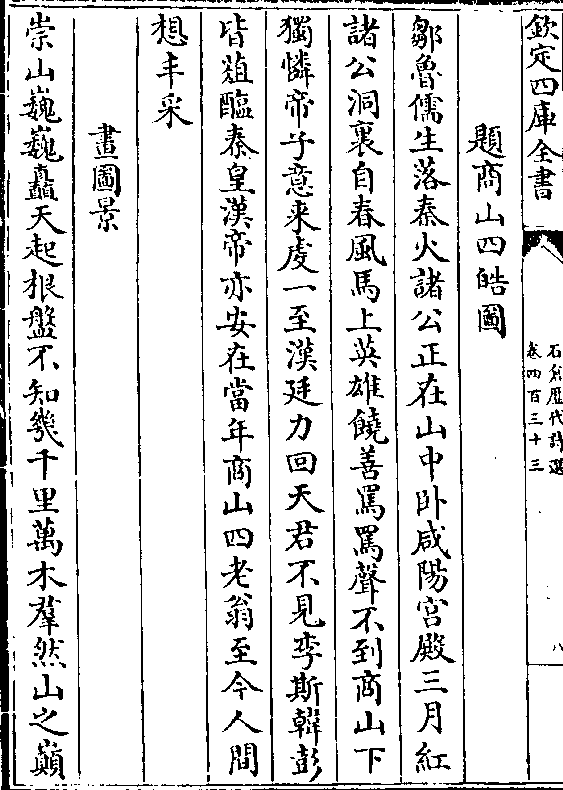 欽定四庫全書
石倉歴代詩選
卷四百三十三
八
題商山四皓圖
鄒魯儒生落秦火諸公正在山中卧咸陽宮殿三月紅
諸公洞裏自春風馬上英雄饒善罵罵聲不到商山下
獨憐帝子意來虔一至漢廷力回天君不見李斯韓彭
皆葅醢秦皇漢帝亦安在當年商山四老翁至今人間
想丰采
畫圖景
崇山巍巍矗天起根盤不知幾千里萬木羣然山之巔